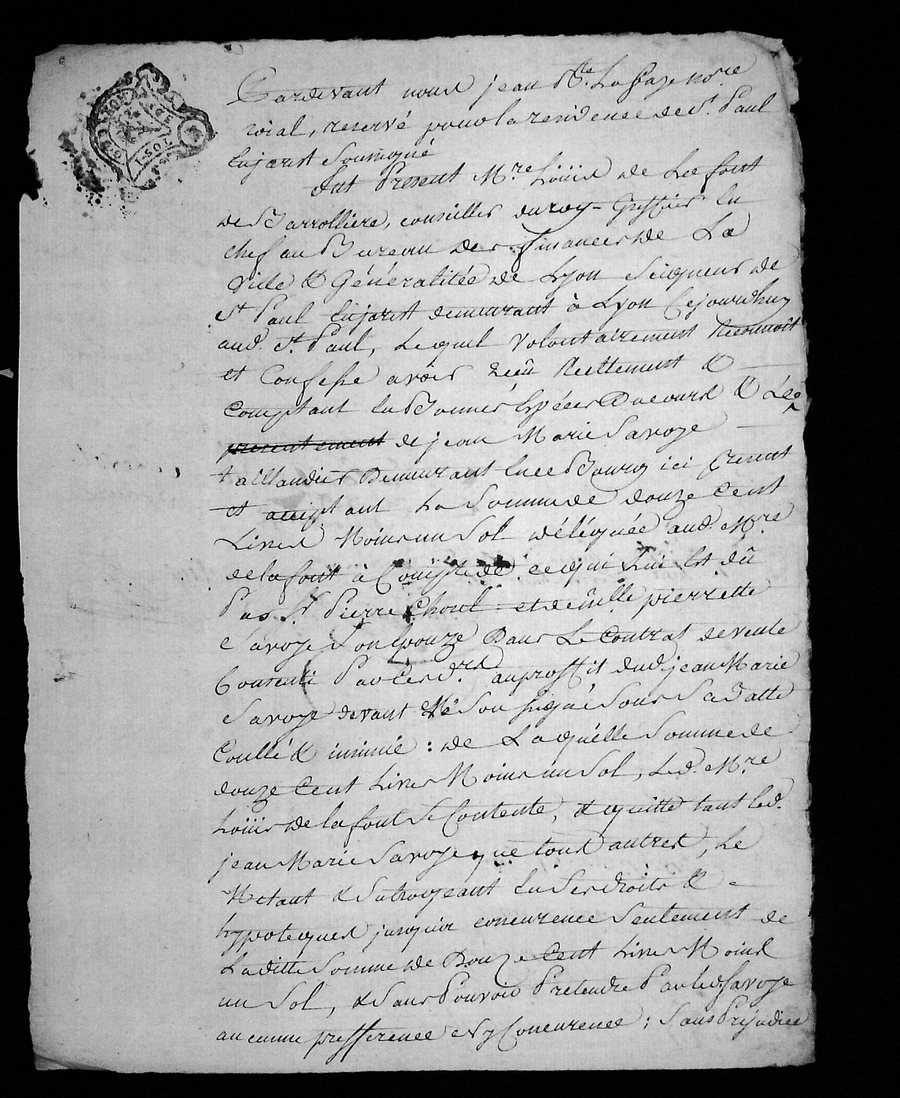 Pardevant nous jean Bte Lafaye nore
roial, reservé pour la residence de St Paul
En jarest Soussigné
fut Present Mre Loüis de La font
de Barrolliere, conseiller du roy Greffier En
chef au Bureau des finances de La
Ville & Généralitée de Lyon Seigneur de
St Paul En jarest demeurant à Lyon Cejourdhuy
aud. St Paul, Lequel Volontairement Reconnoit
et Confesse avoir reçû Reellement &
Comptant En Bonnes Espèces Ducours &
presentement de jean Marie Savoye
taillandier Demeurant En ce Bourg ici present
et acceptant La Somme de douze Cent
Livres Moins un Sol déléguée aud. Mre
de la font à Compte de ce qui Lui Est dû
Par Sr Pierre Choul et demlle pierrette
Savoye Son Epouze Dans Le Contrat de vente
Consenti Par les d. au proffit dud. jean Marie
Savoye devant Me Soussigné Sous Sa Datte
Collé & insinué : de Laquélle Somme de
douze Cent Livres Moins un Sol, Led. Mre
Loüis de la font Se Contente, & quitte tant led.
jean Marie Savoye que tous autres, Le
Metant & Subrogeant En Ses droits &
hypoteques jusqu'a concurence Seulement de
La ditte Somme de Douze Cent Livres Moins
un Sol, & Sans Pouvoir Pretendre Par led Savoye
aucunne presference Ny Concurence ; Sans Prejudice